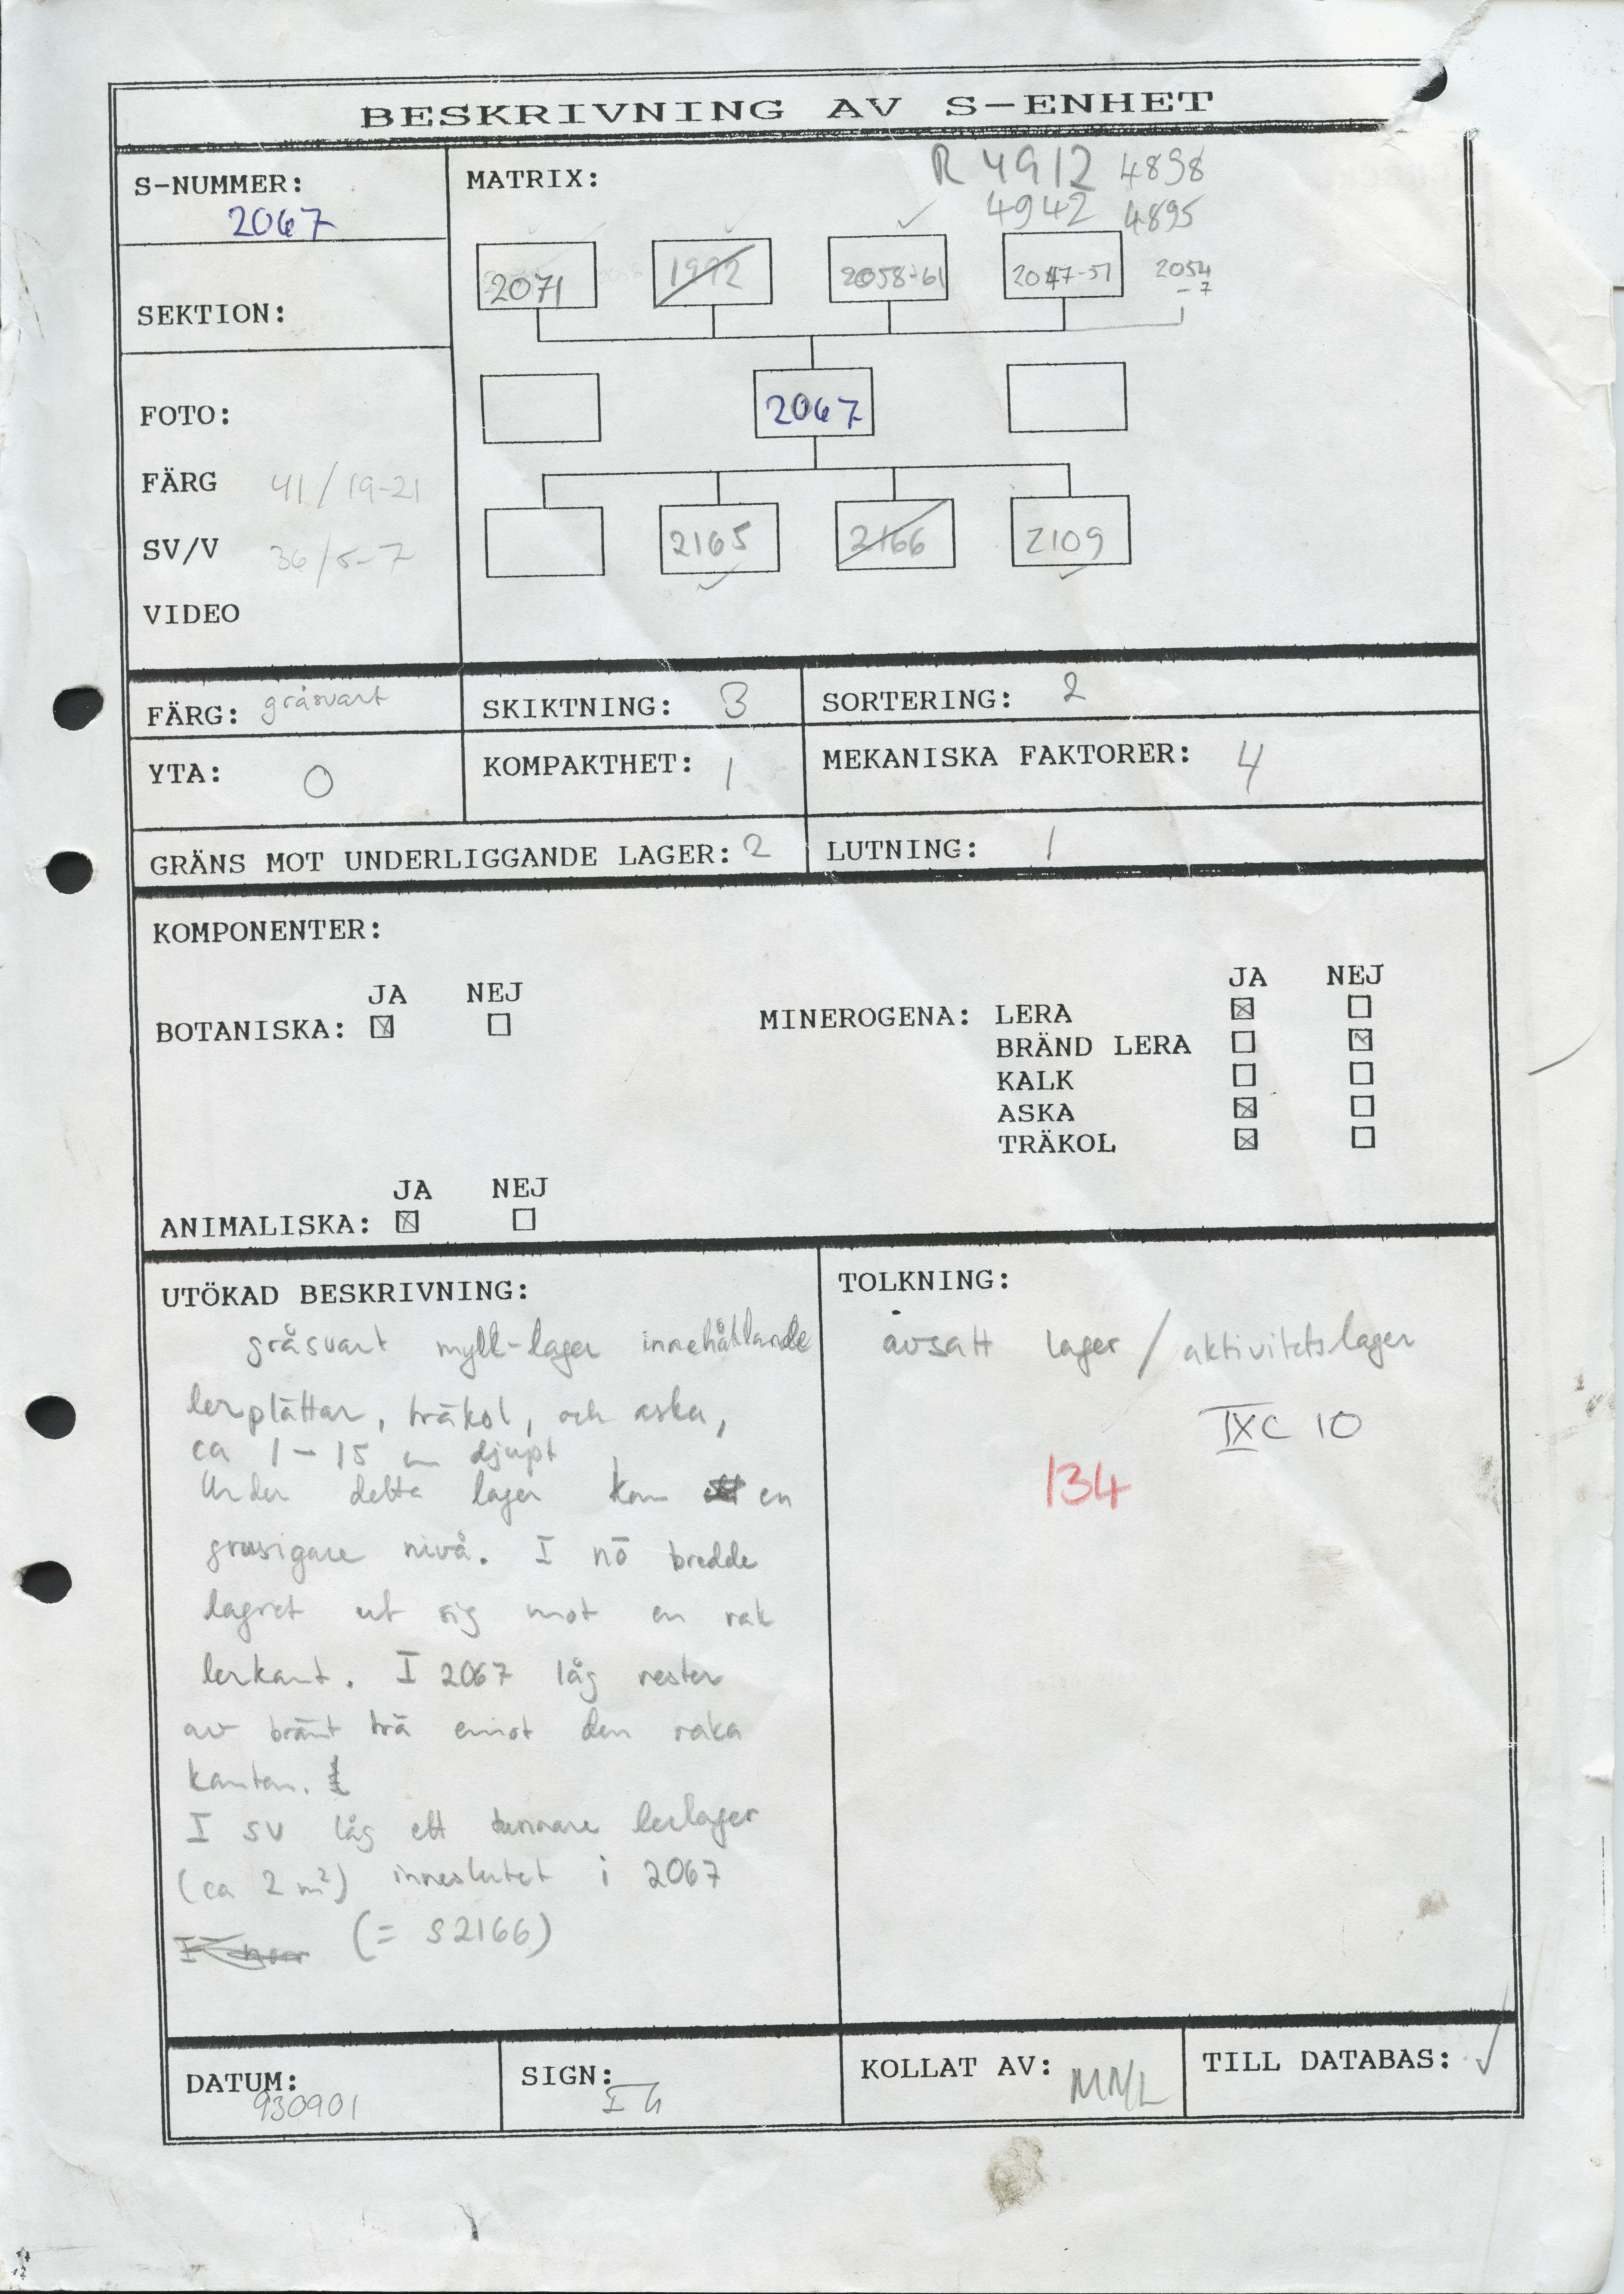 BESKRIVNING AV S-ENHET
S-NUMMER:
2067
MATRIX:
R 4912 4898
4942 4895
2071 1992 2058-61 2047-51 2054-7
SEKTION:
2067
FOTO:
FÄRG 41/19-21
SV/V 36/5-7
VIDEO
2165 2166 2109
FÄRG: gråsvart SKIKTNING: 3 SORTERING: 2
YTA: 0 KOMPAKTHET: 1 MEKANISKA FAKTORER: 4
GRÄNS MOT UNDERLIGGANDE LAGER: 2 LUTNING: 1
KOMPONENTER:
JA NEJ
BOTANISKA:
JA NEJ
MINEROGENA: LERA
BRÄND LERA
KALK
ASKA
TRÄKOL
JA NEJ
ANIMALISKA:
UTÖKAD BESKRIVNING:
gråsvart myll-lager innehållande
lerplättar, träkol, och aska,
ca 1-15 cm djupt
Under detta lager kom en
grusigare nivå. I nö bredde
lagret ut sig mot en rak
lerkant. I 2067 låg rester
av bränt trä emot den raka
kanten.
I SV låg ett tunnare lerlager
(ca 2 m²) inneslutet i 2067
(= S2166)
TOLKNING:
avsatt lager / aktivitetslager
IXC 10
134
DATUM:
930901
SIGN:
KOLLAT AV:
TILL DATABAS: ✓